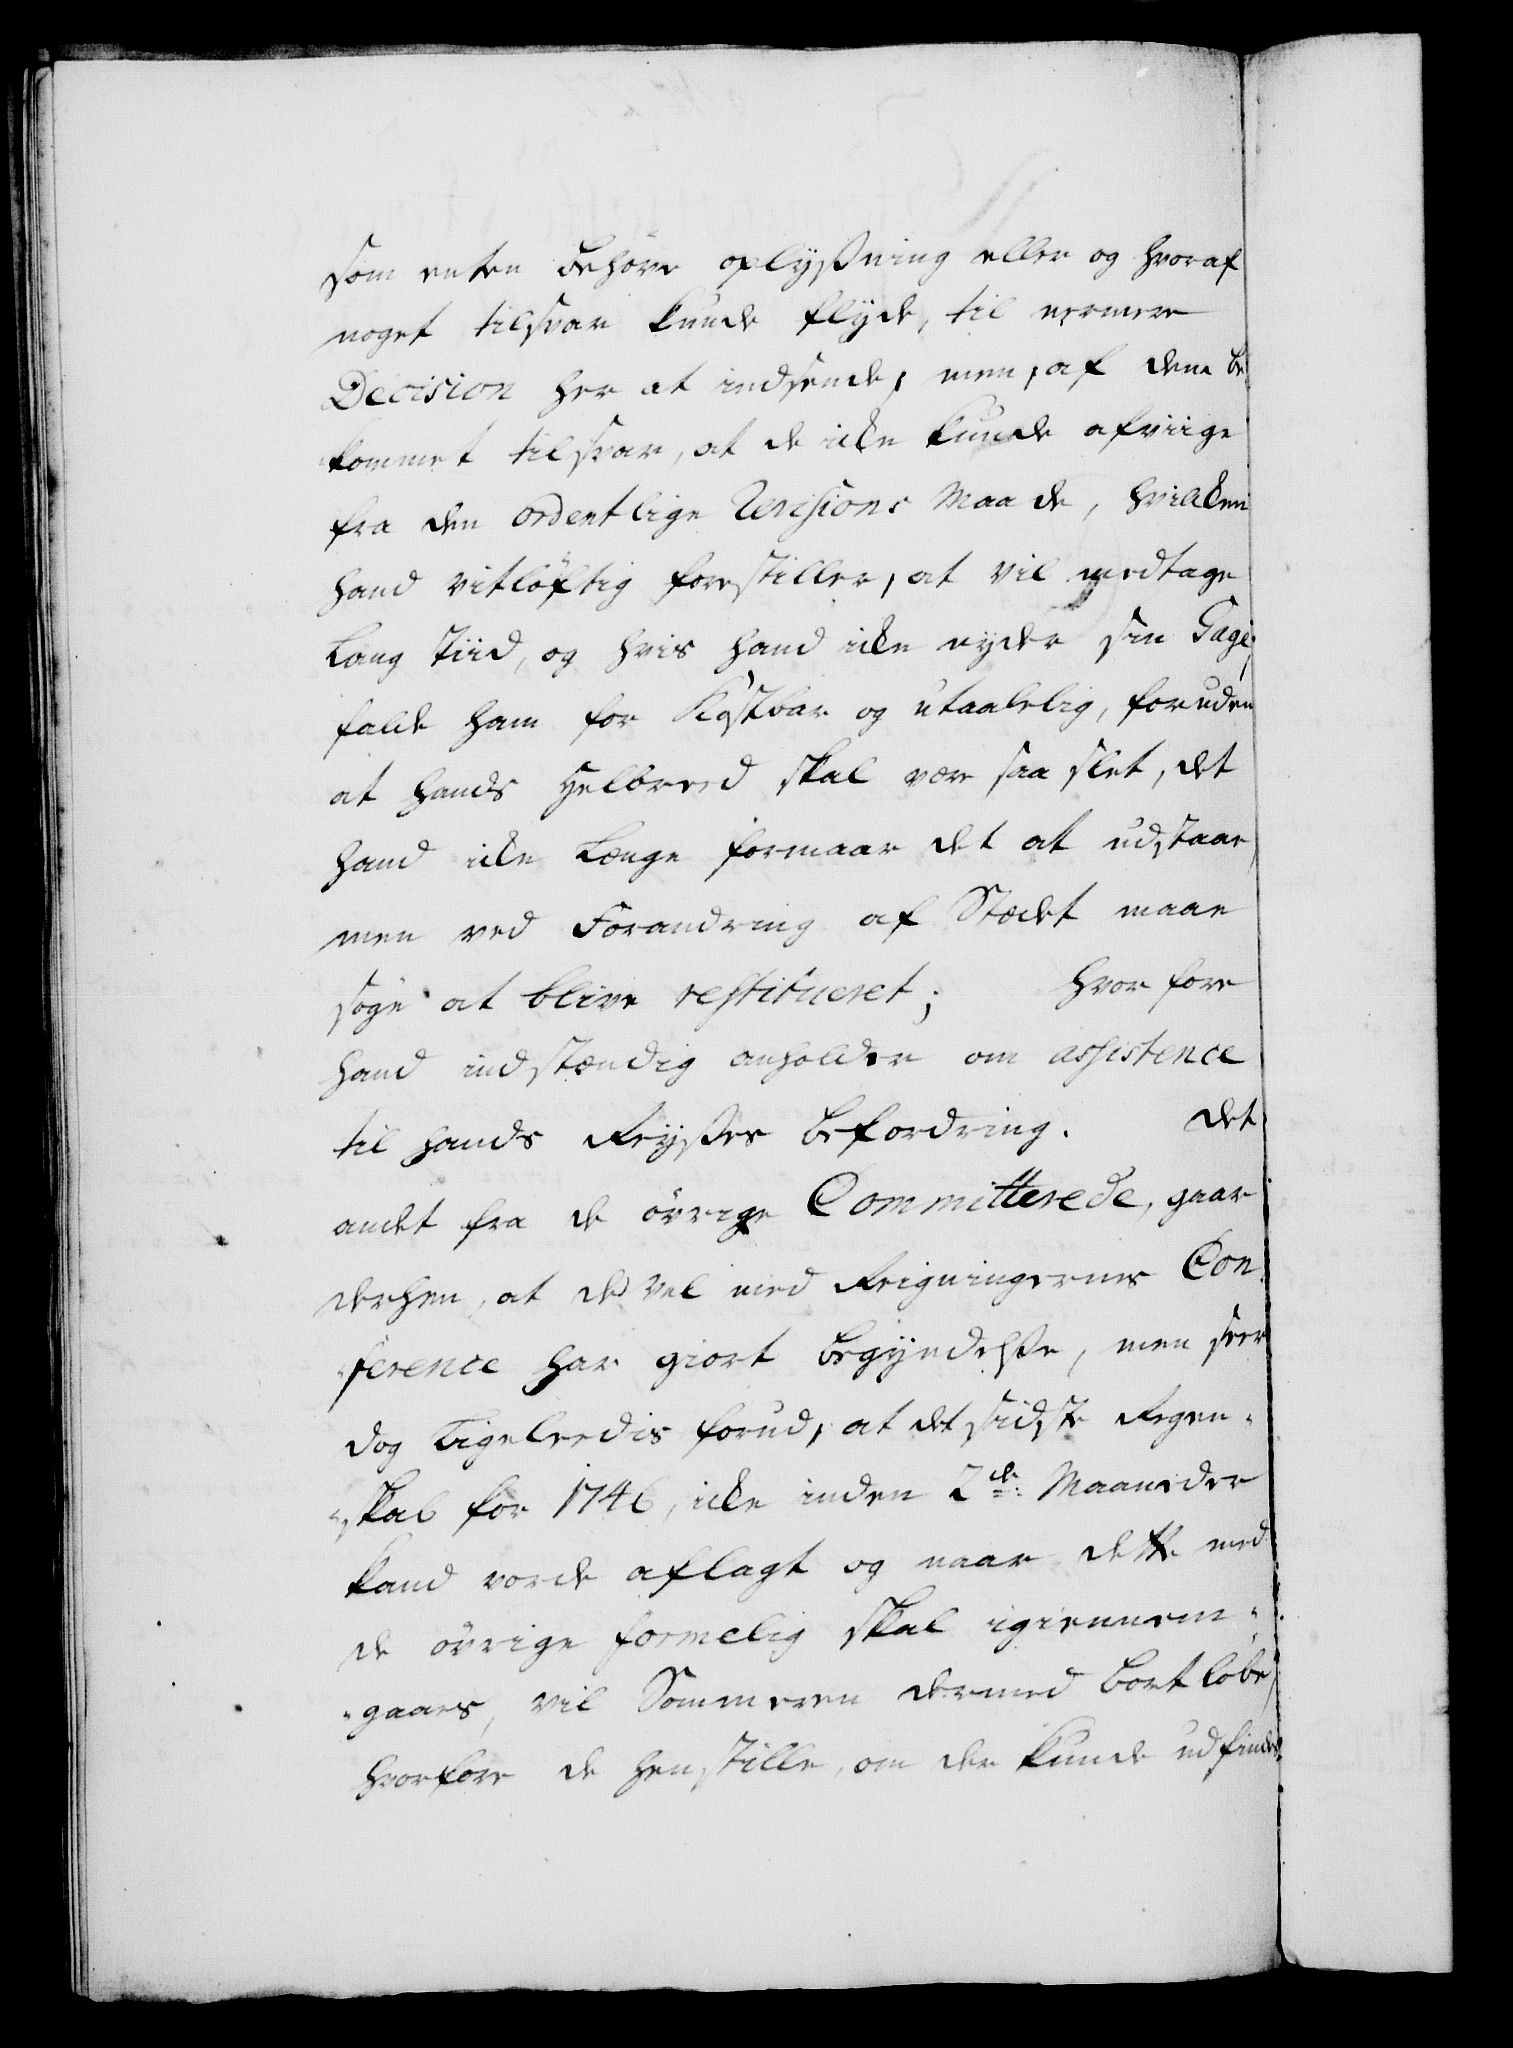 som enten behöve oplyßning eller og hvoraf
noget tilsvar kunde flyde, til nermere
Decision her at indsende, men, af dem be
kommet tilsvar, at de icke kunde afviige
fra den ordentlige Revisions Maade, hvilcken
hand vitlöftig forestiller, at vil medtage
Lang Tiid, og hvis hand icke nyder sin Gage,
falde ham for Kostbar og utaalelig, foruden
at hands Helbreed skal være saa slet, det
hand icke Længe formaar det at udstaae,
men ved Forandring af Stædet maae
söge at blive restitueret; hvorfore
hand indstændig anholder om assistence
til hands Reyßes befordring. Det
andet fra de övrige Committerede, gaar
derhen, at de vel med Reigningernes Con
ference har giort begyndelße, men seer
dog Ligeleedis forud, at det sidste Regen-
skab for 1746, icke inden 2de Maaneder
kand vorde aflagt og naar dette med
de övrige formelig skal igiennem-
gaaes, vil Sommeren dermed bortlöbe,
hvorfore de henstille, om der kunde udfindes